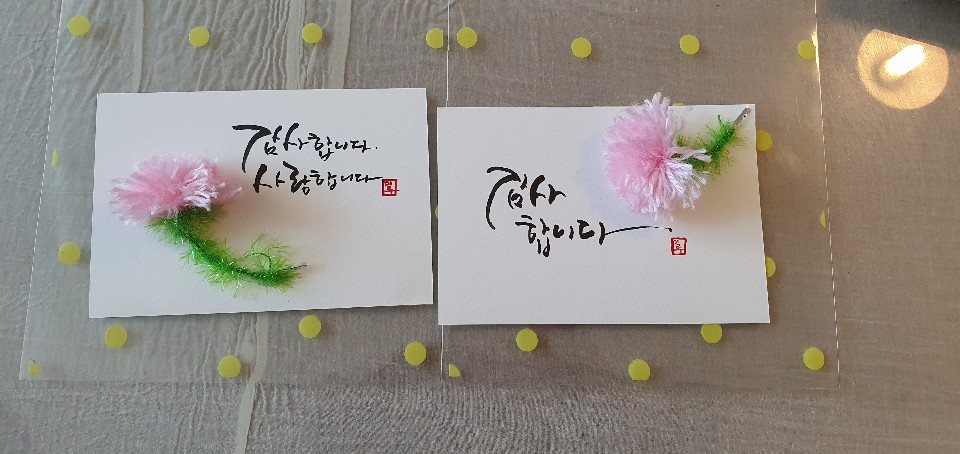 감사합니다.
사랑합니다
감사
합니다